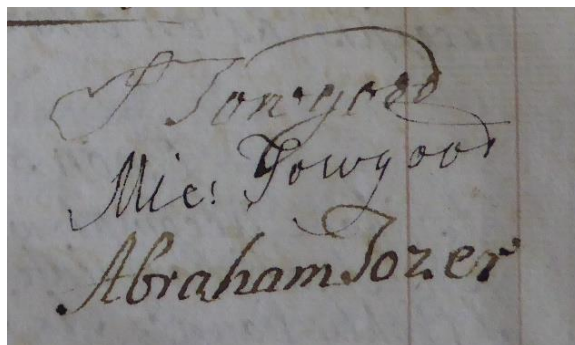 S Towgood
Mic: Towgood
Abraham Tozer